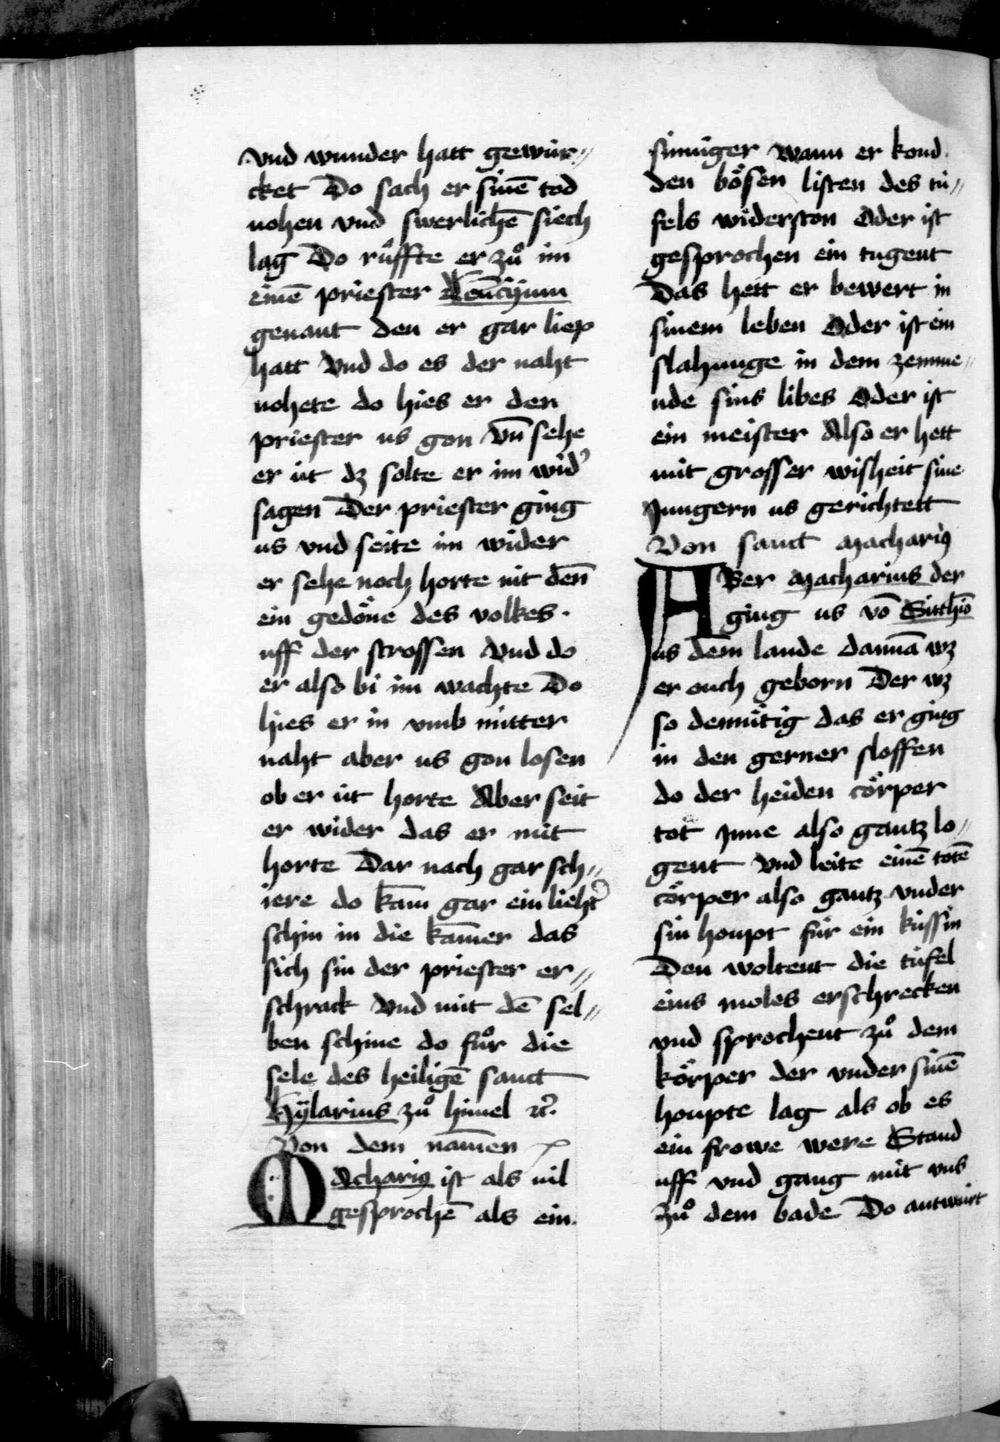 vnd wunder hatt gewür⸗
cket Do sach er sinē tod
nohen vnd swerlichē siech
lag Do růffte er zů im
einē priester Leūcijum
genant den er gar liep
hatt Vnd do es der naht
nohete do hies er den
priester us gon vn̄ sehe
er út dz solte er im wid᾽
sagen Der priester ging
us vnd seite im wider
er sehe noch horte nit den̄
ein gedöne des volkes.
uff der strossen Vnd do
er also bi im wachte Do
hies er in vmb mitter
naht aber us gon losen
ob er út horte Aber seit
er wider das er nüt
horte Dar nach gar sch⸗
iere do kam̄ gar ein lieht᾽
schin in die kam̄er das
sich sin der priester er⸗
schrack Vnd mit dē sel⸗
ben schine do fůr die
sele des heiligē sanct
Hÿlarius zů him̄el ꝛc̄.
Von dem nam̄en
Macharıꝰ ist als uil
gesprochē als ein
sinniger Wann er kond
den bösen listen des tú⸗
fels widerston Oder ist
gesprochen ein tugent
Das hett er bewert in
sinem leben Oder ist ein
slahunge in dem zemme⸗
nde sins libes Oder ist
ein meister Also er hett
mit grosser wisheit sine
Jungern us gerichtett
Von sanct Macharıꝰ
ABer Macharius der
ging us vō Sitthiō
us dem lande dannā wz
er ouch geborn Der wz
so demütig das er ging
in den gerner sloffen
do der heiden cörper
tot Inne also gantz lo⸗
gent Vnd leite einē totē
cörper also gantz vnder
sin houpt für ein küssin
Den woltent die túfel
eins moles erschrecken
vnd sprochent zů dem
körper der vnder sinē
houpte lag als ob es
ein frowe were Stand
uff vnd gang mit vns
zů dem bade Do antwürt